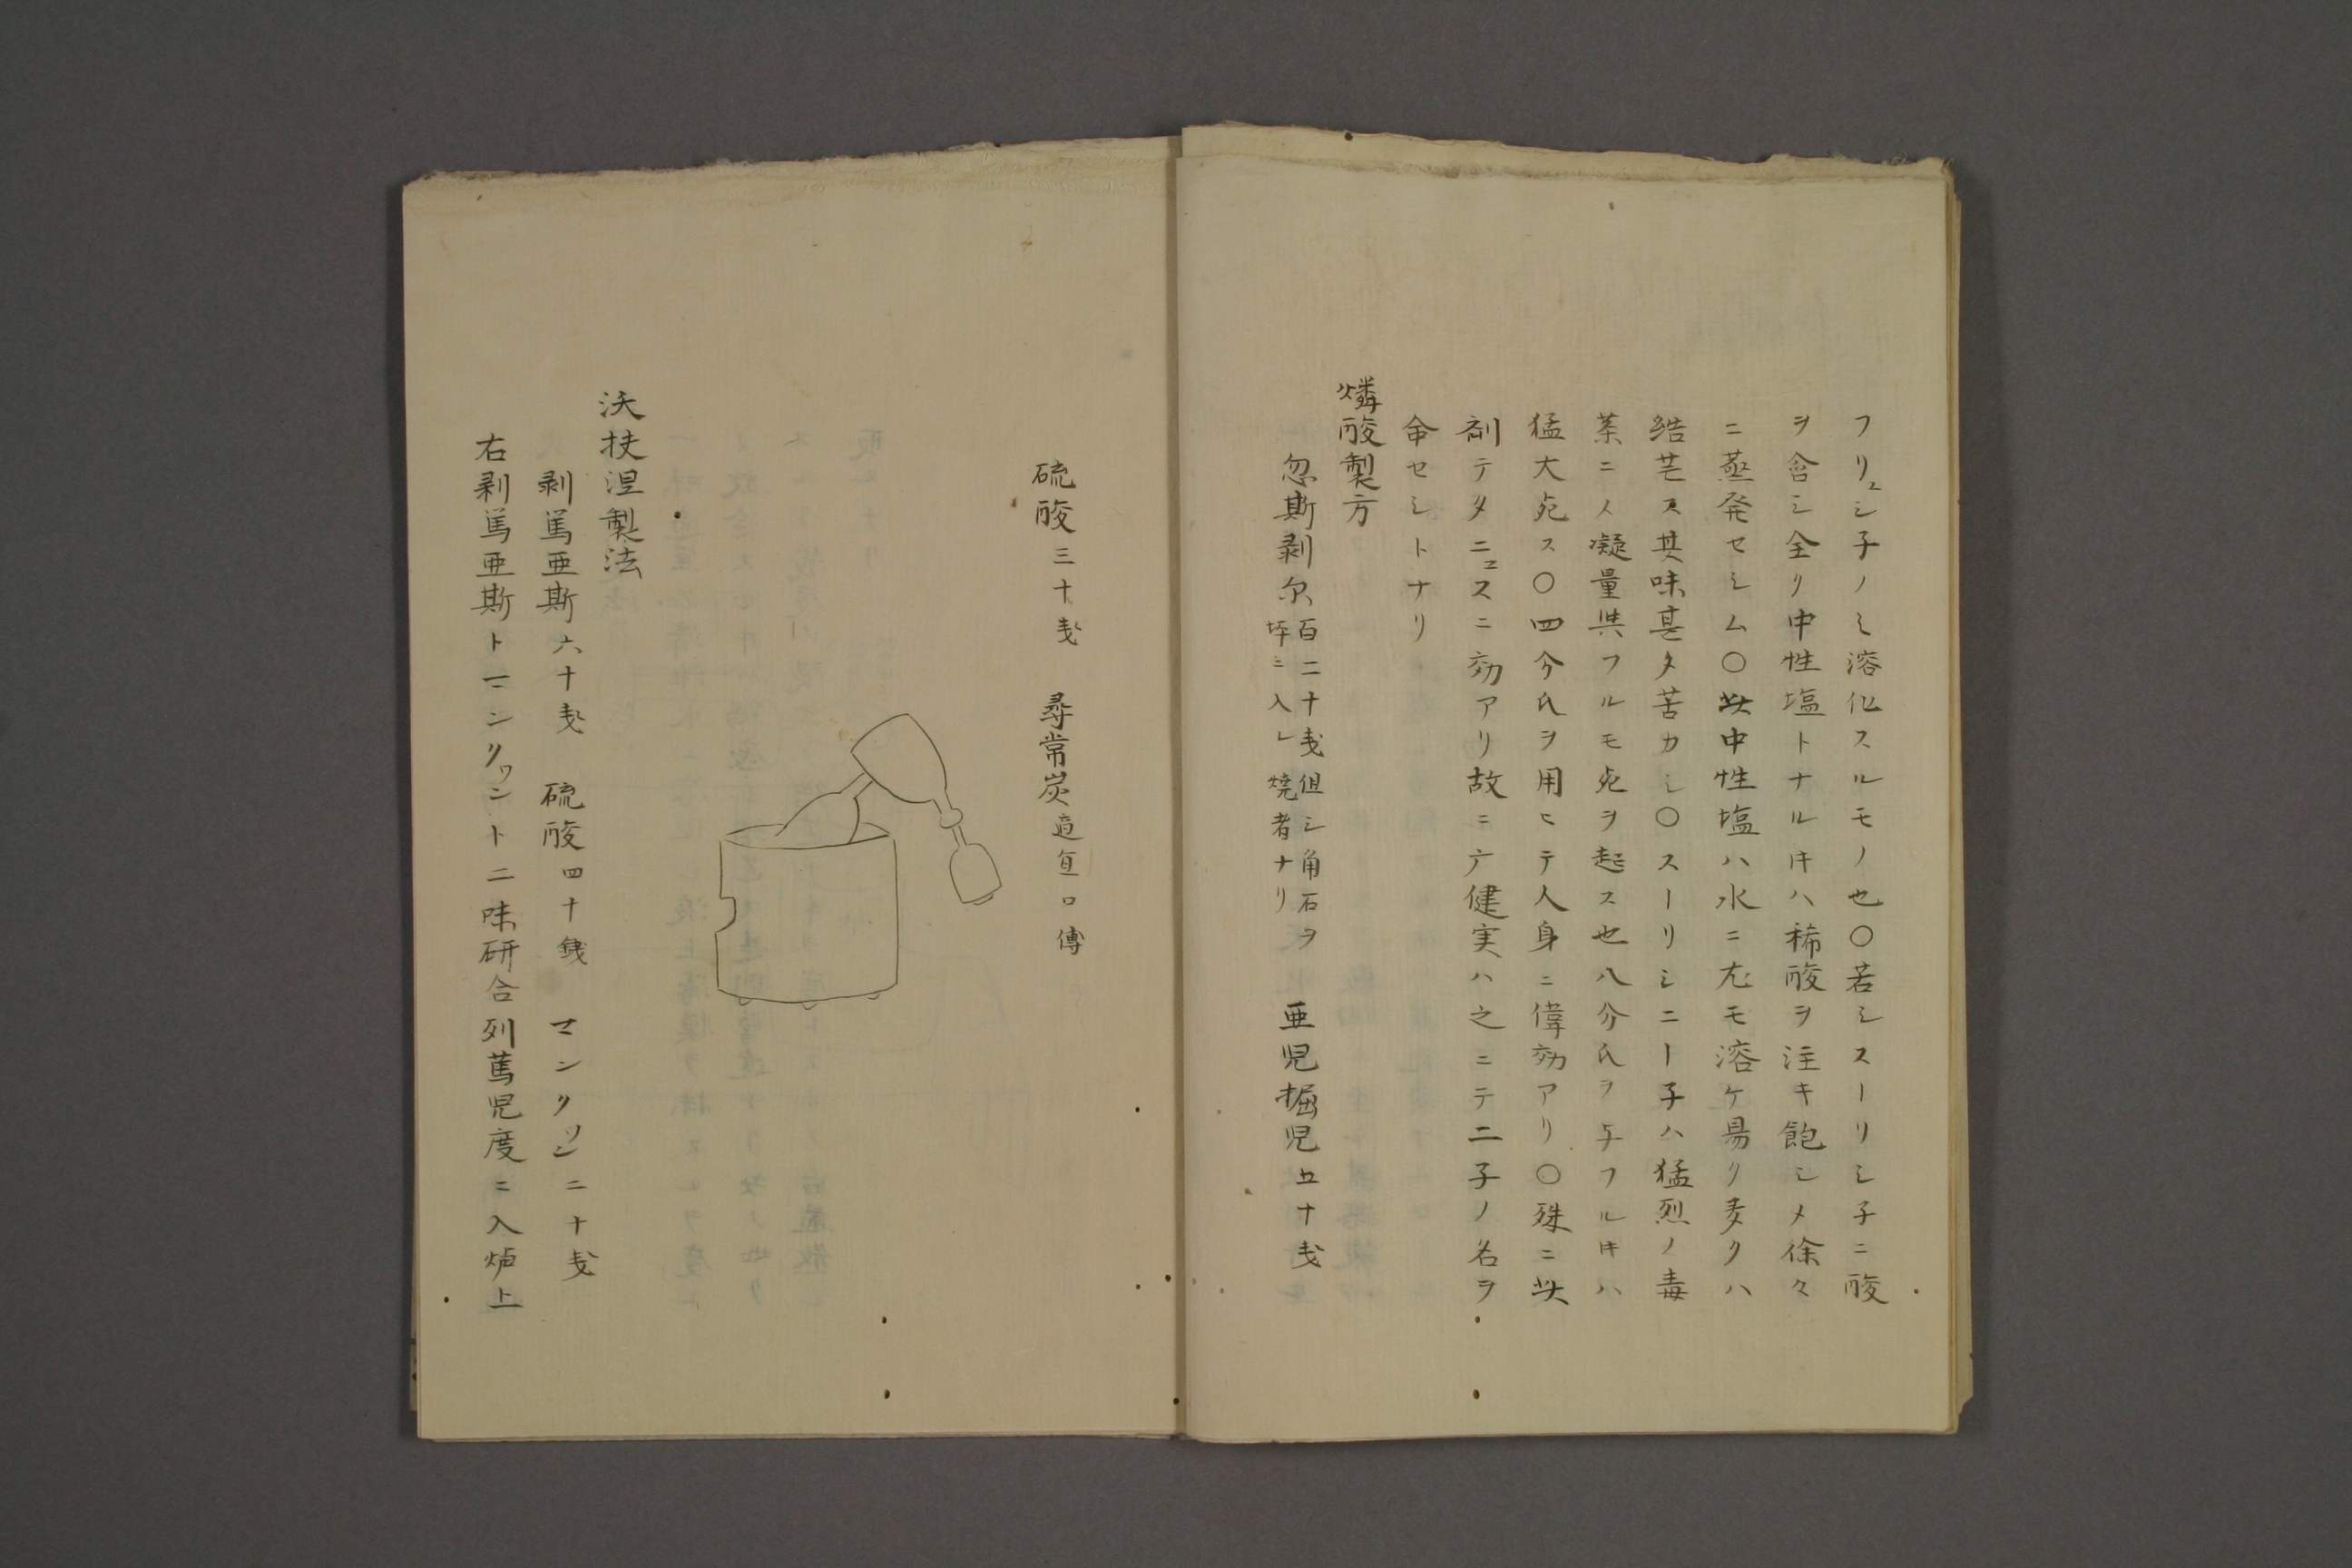 フリュシ子ノミ溶化スルモノ也〇若シスーリシ子ニ酸
ヲ含シ全リ中性塩トナルキハ稀酸ヲ注キ飽シメ徐々
ニ蒸発セシム〇此中性塩ハ水ニ尤モ溶ケ易リ多クハ
結芒ス其味甚タ苦カシ〇スーリシニー子ハ猛烈ノ毒
ニノ凝量與フルモ死ヲ起ス也八分氏ヲ与フルキハ
猛大死ス〇四分氏ヲ用ヒテ人身ニ偉効アリ〇殊ニ此
剤テタニュスニ効アリ故ニ健実ハ之ニテ二子ノ名ヲ
命セシトナリ
燐酸製方
忽斯剥尓百二十戔但シ角石ヲ坪ニ入レ焼者ナリ 亜児掘児五十戔
硫酸三十戔 尋常炭適宜口傳
沃扶涅製法
剥篤亜斯六十戔 硫酸四十銭 マンクワン二十戔
右剥篤亜斯トマンクワント二味研合列篤児度ニ入炉上